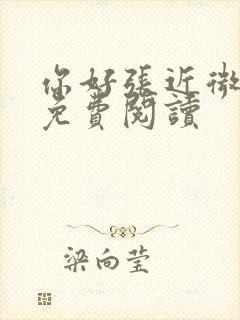 你好張近微
免費閱讀
梁向莹